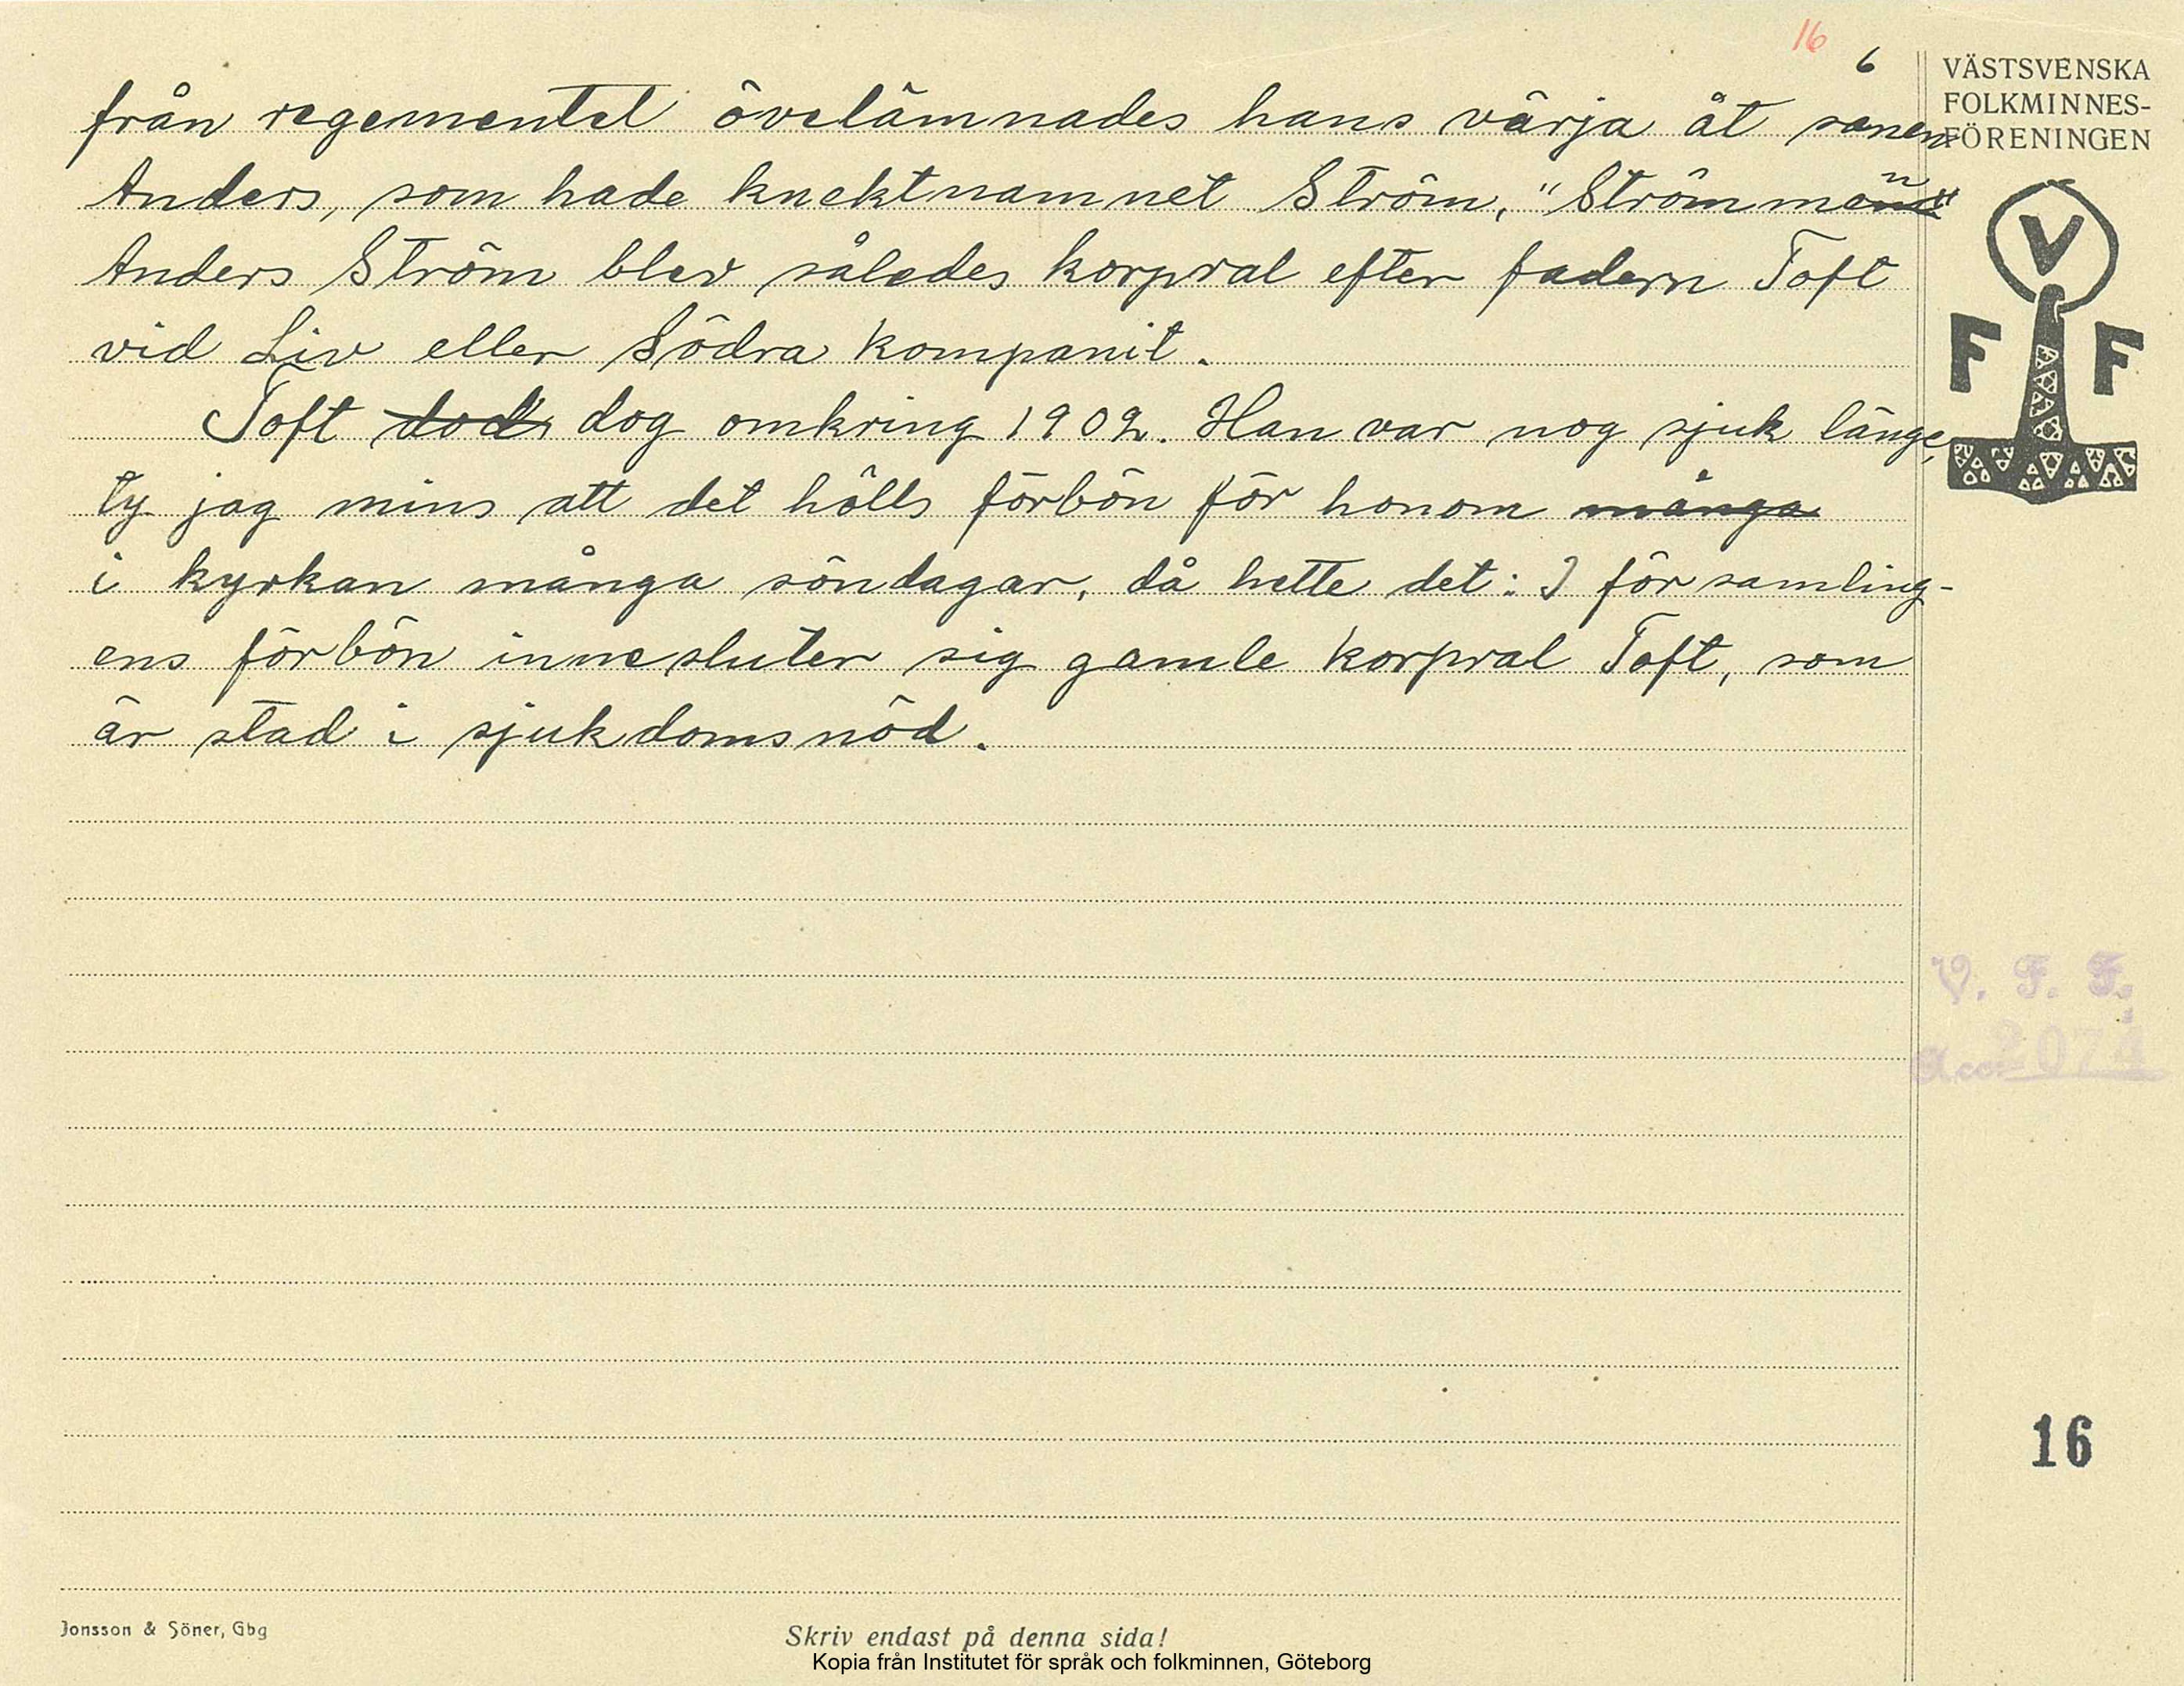 16
6
från regementet övelämnades hans värja åt sonen
Anders, som hade knektnamnet Ström, "Strömmen"
Anders Ström blev således korpral efter fadern Toft
vid Liv eller Södra kompanit.
Toft dog omkring 1902. Han var nog sjuk länge,
ty jag mins att det hölls förbön för honom många
i kyrkan många söndagar, då hette det: I församling-
ens förbön innesluter sig gamle korpral Toft, som
är stad i sjukdomsnöd.
VÄSTSVENSKA
FOLKMINNES-
FÖRENINGEN
V
F F
V. F. F.
Acc.
16
Jonsson & Söner, Gbg
Skriv endast på denna sida!
Kopia från Institutet för språk och folkminnen, Göteborg